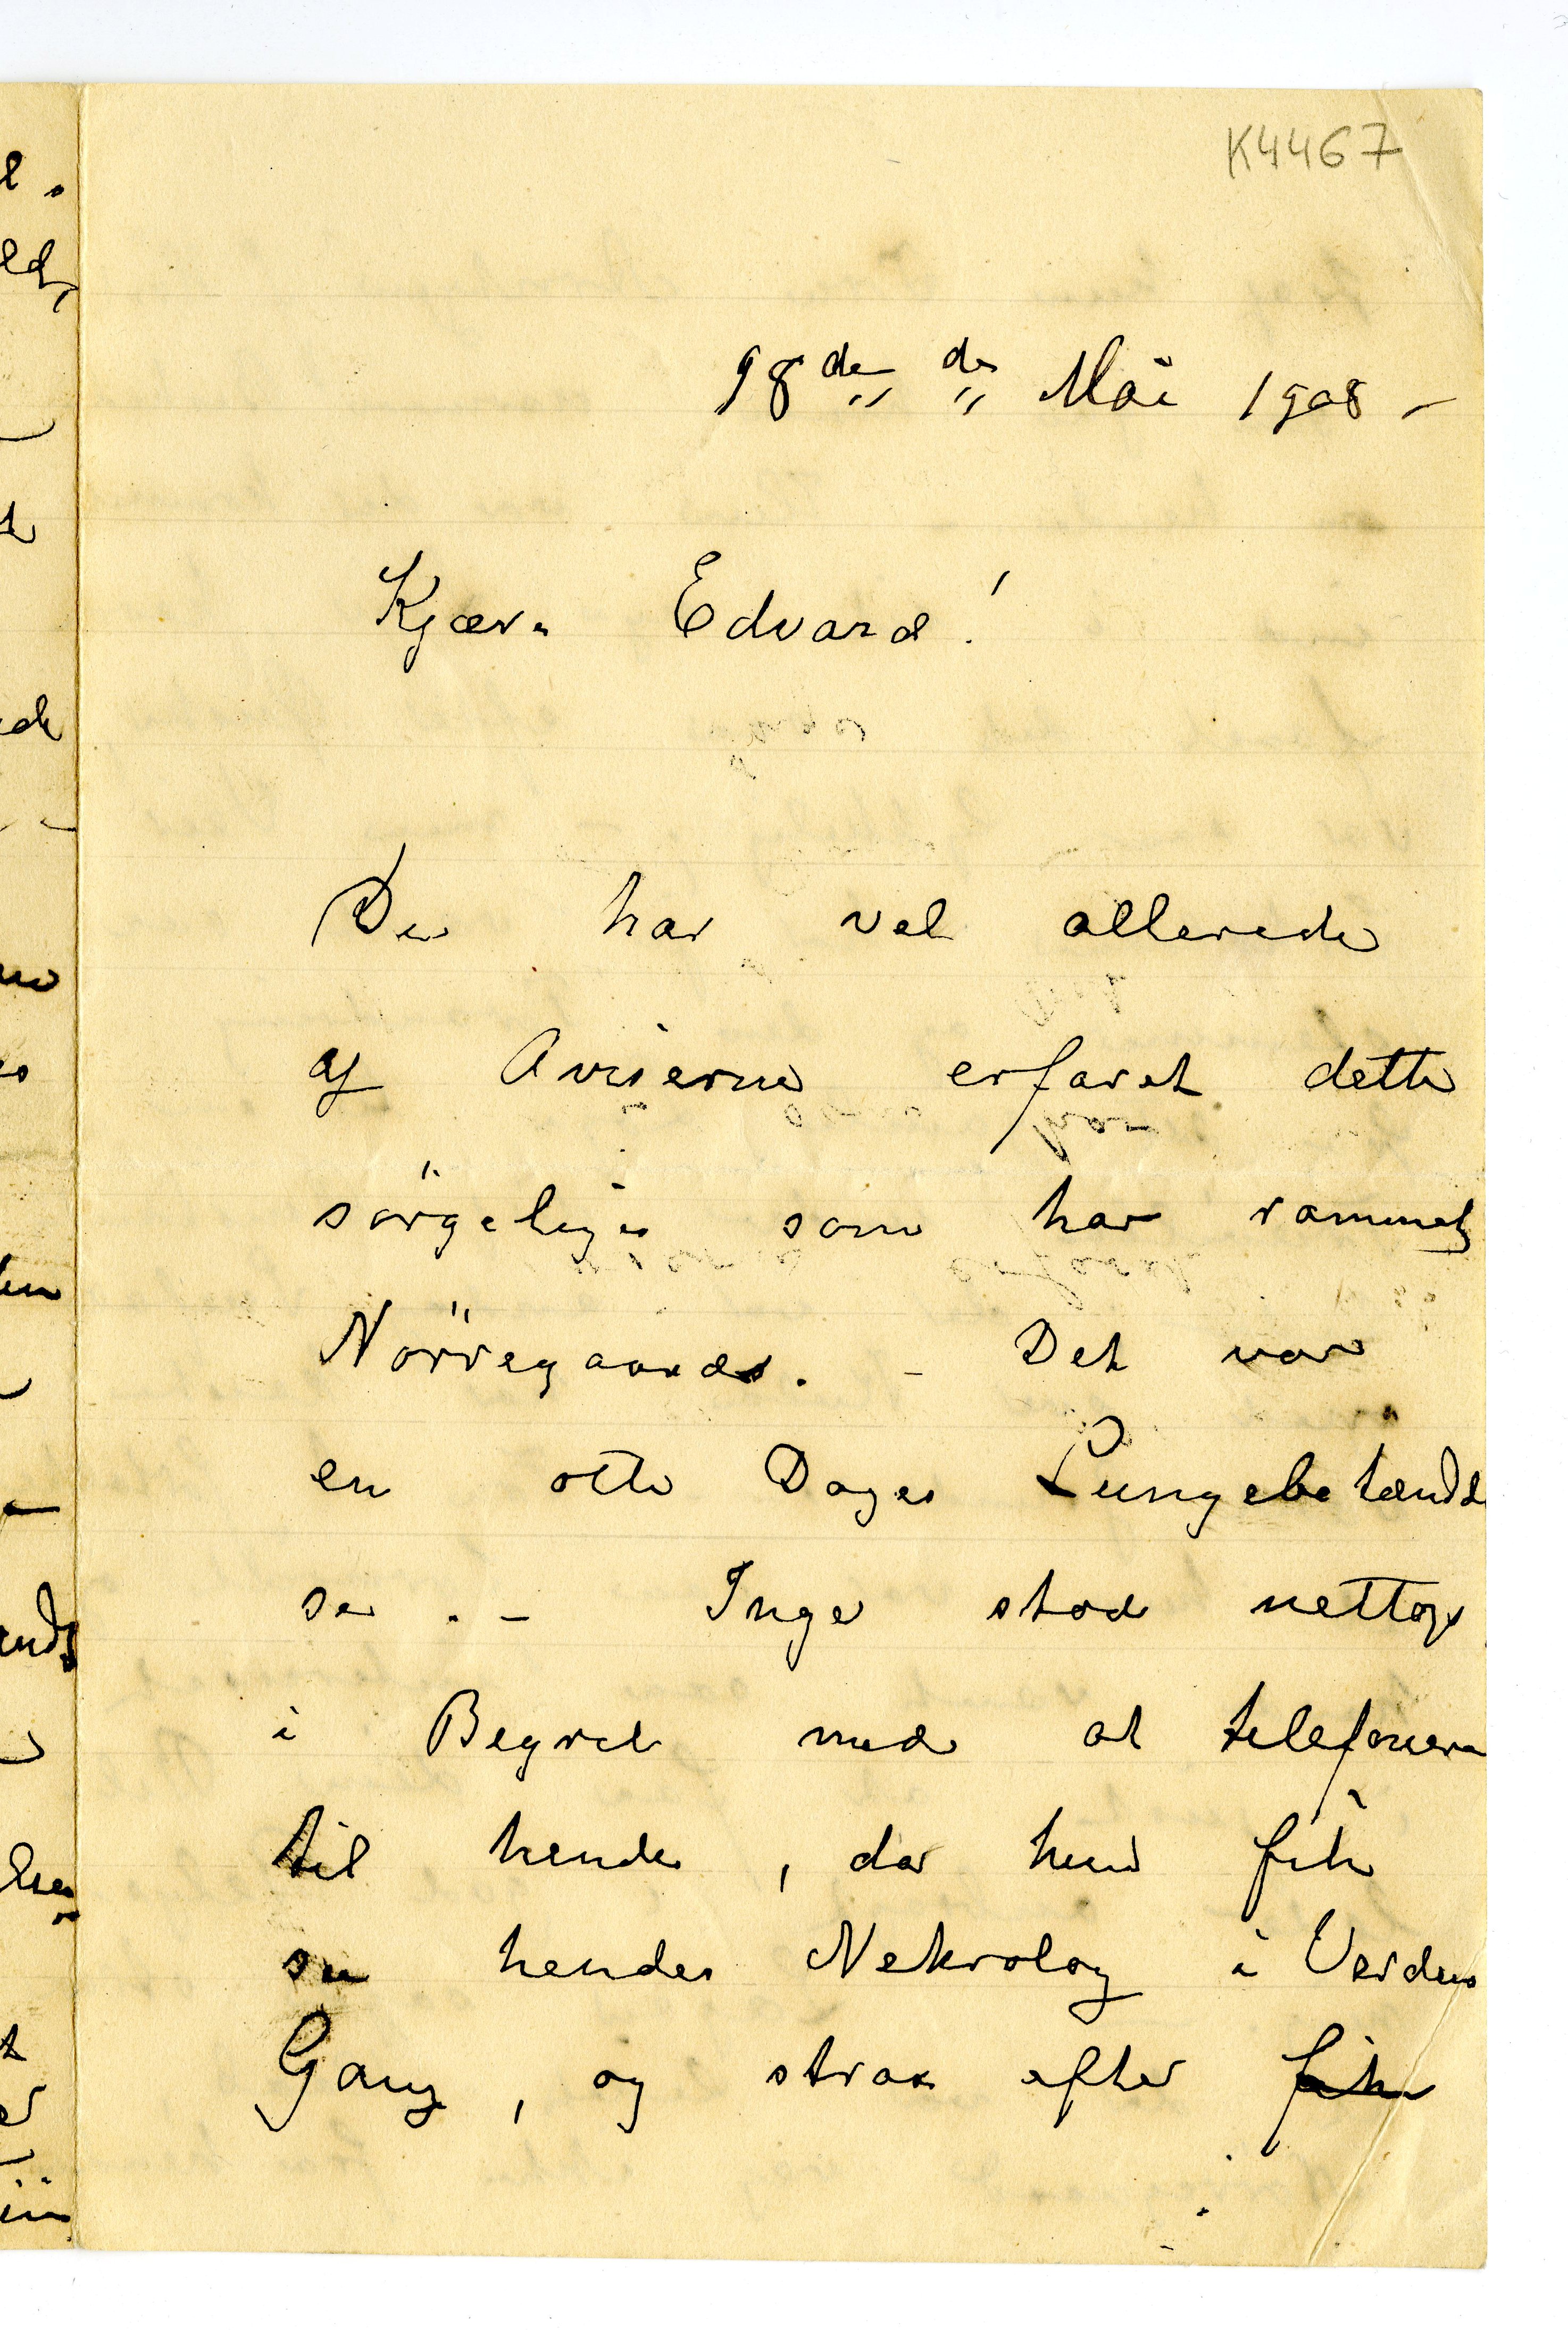 K4467
18de de Mai 1908 –
Kjære Edvard!
Du har vel allerede
af Aviserne erfaret dette
sörgelige som har rammet
Nörregaards. – Det var
en otte Dages Lungebetændel
se. – Inger stod nettop
i Begreb med at telefonere
til hende, da hun fik
se hendes Nekrolog i Verdens
Gang, og strax efter fik